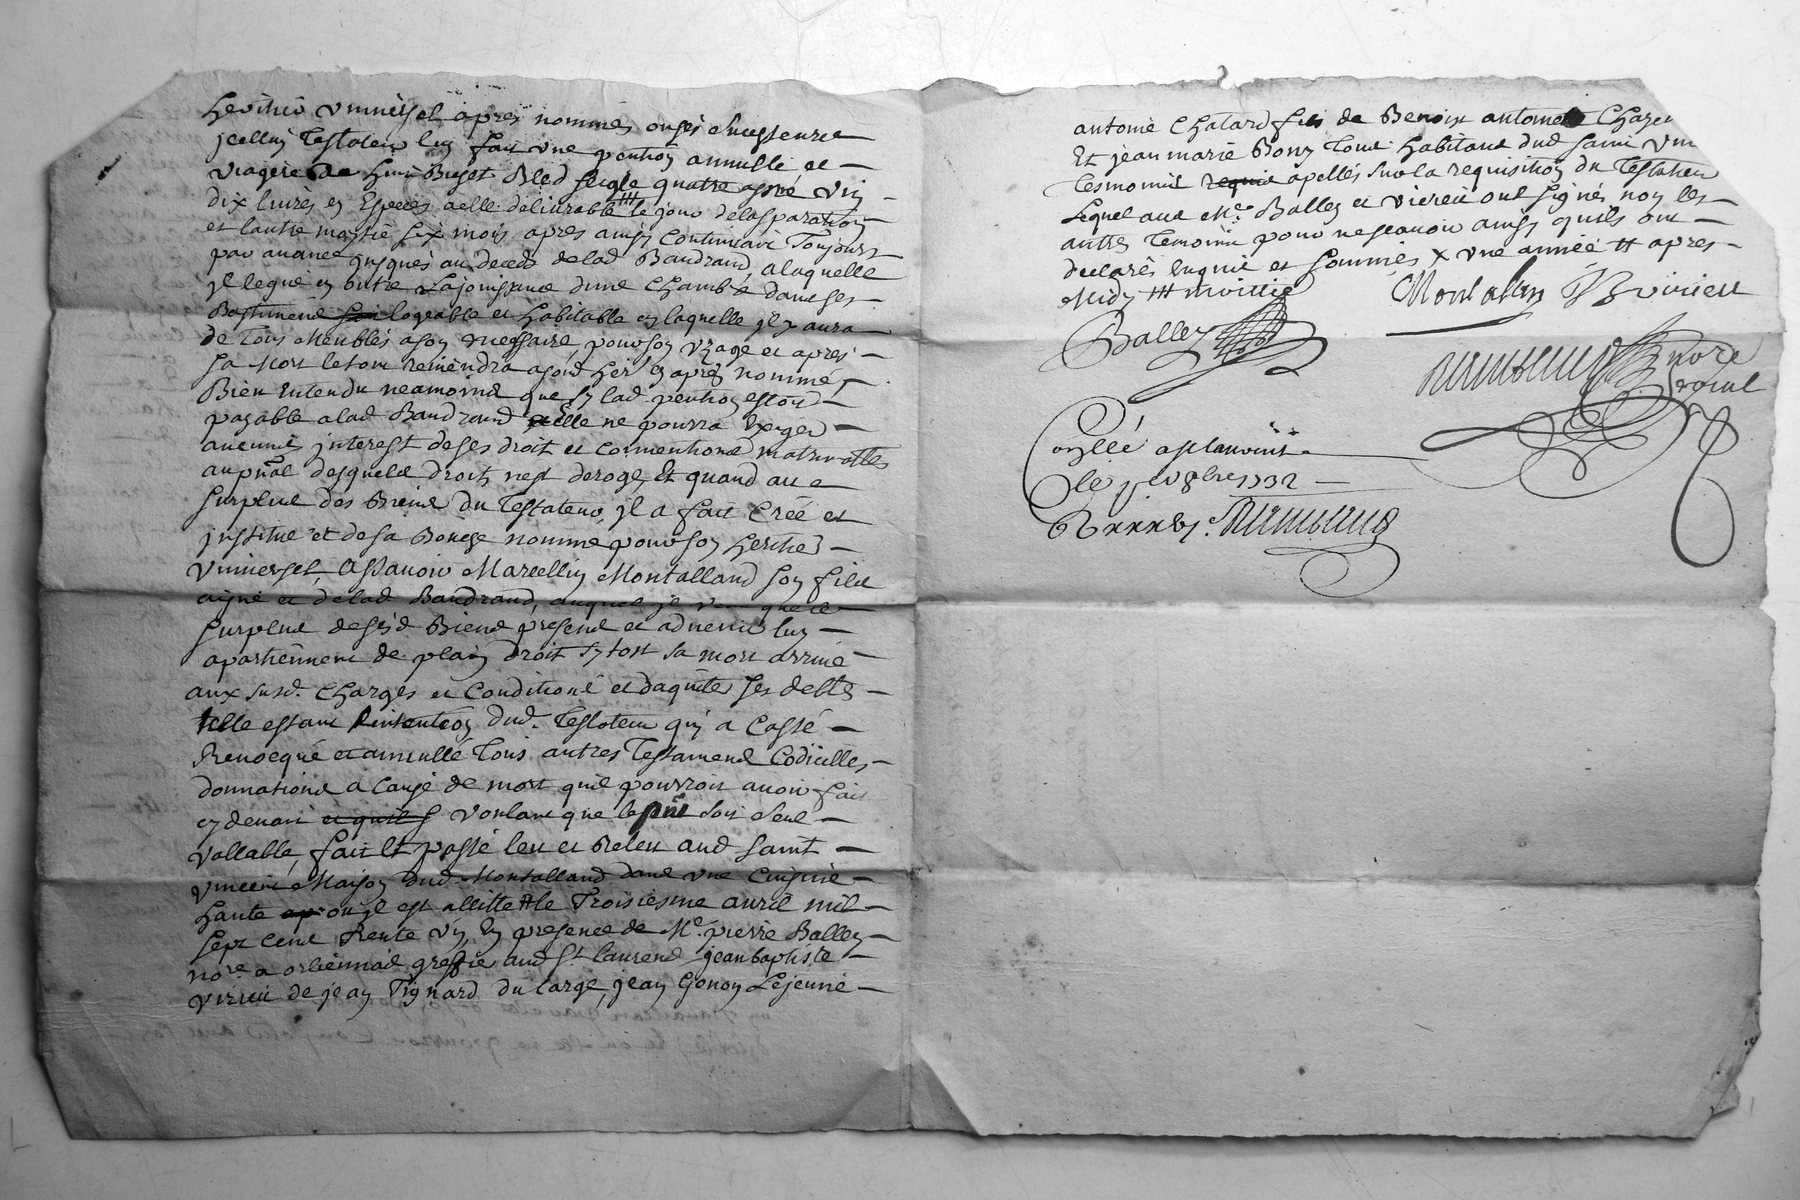 heritier universel apres nommés ou ses successeurs
icelluy Testateur luy fait une pention annuelle et
viagere de huit Bichet Bled seigle quatre asnée vin
dix livres en Especes a elle délivrable ╫ le jour de la separation
et lautre moytié six mois apres ainsy Continuant Toujours
par avance jusques au deceds de lad Baudrand, a laquelle
jl legue en outre La joüissance dune Chambre dans ses
Bastiments logeable et habitable en laquelle jl y aura
de Tous Meubles a son necessaire, pour son Uzage et apres
sa Mort le tout reviendra a sond her en apres nommé
Bien Entendu neamoins que sy lad pention estoit
payable a lad Baudrand elle ne pourra Exiger
aucuns jnterest de ses droit et Conventions matrimolles
au pnal desquels droits nest deroge, Et quand au
surplus des Biens du Testateur, jl a fait Créé et
jnstitué et de sa Bouche nommé pour son Heritier
Universel, Assavoir Marcellin Montalland son fils
aisné et de lad Baudrand, auquel jl veu que le
surplus de sesd Biens presens et advenir luy
apartiennent de plain droit sy tost sa mort arrivé
aux susd. Charges et Conditions et daquiter ses debtes
telle estant Lintention dud. Testateur qui a Cassé
Revocqué et annullé Tous autres Testamens Codicilles
donnations a Cause de mort quil pourroit avoir fait
cy devant et quil s voulant que le pnt soit seul
vallable, fait Et passé leu et Releu aud Saint
Vincent Maison dud Montalland dans une Cuisine
haute ou jl est allitté ╫ le Troisiesme avril mil
sept cens Trente Un En presence de Me. pierre Balley
nore a greffier aud St laurend jean baptiste
virieu de jean Tignard du large, jean Gonon Lejeune
antoine Chatard fils de Benoist antoine
Et jean marie Bony Tous habitans dud saint Vin
Tesmoins requis apellés sur la requisition du Testateur
Lequel avec Me. Balley et virieu ont signés non les
autres temoins pour ne scavoir ainsy quils ont
declarés Enquis et sommés X une année ╫ apres
Midy ╫ moittié
Montallan JB virieu
Balley
nore
Royal
Conllé a St laurent
le 8bre 1732